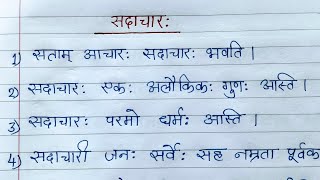 सदाचारः
1) सताम् आचारः सदाचारः भवति ।
2) सदाचारः एकः अलौकिकः गुणः अस्ति ।
3) सदाचारः परमो धर्मः अस्ति ।
4) सदाचारी जनः सर्वेः सह नम्रता पूर्वक